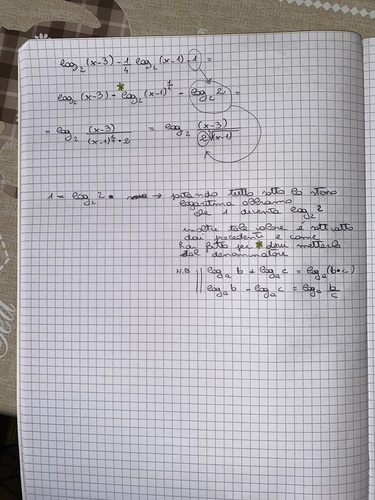 log₂ (x-3) - 1/4 log₂ (x-1) - 1 =
log₂ (x-3) - log₂ (x-1)^1/4 - log₂ 2 =
= log₂ (x-3) / ((x-1)^1/4 · 2) = log₂ (x-3) / (2 ∜(x-1))
1 = log₂ 2 → portando tutto sotto lo stesso
logaritmo abbiamo
che 1 diventa log₂ 2
inoltre tale valore è sottratto
dai precedenti e come
hai fatto per * devi metterlo
al denominatore
N.B. logₐ b + logₐ c = logₐ (b·c)
logₐ b - logₐ c = logₐ b/c